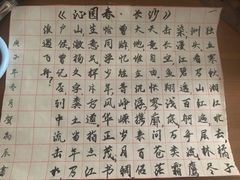 《沁园春·长沙》
独立寒秋湘江北去橘子
洲头看万山红遍层林尽
染漫江碧透百舸争流鹰
击长空鱼翔浅底万类霜
天竞自由怅寥廓问苍茫
大地谁主沉浮携来百侣
曾游忆往昔峥嵘岁月稠
恰同学少年风华正茂书
生意气挥斥方遒指点江
山激扬文字粪土当年万
户侯曾记否到中流击水
浪遏飞舟
庚子年春月贺尚书